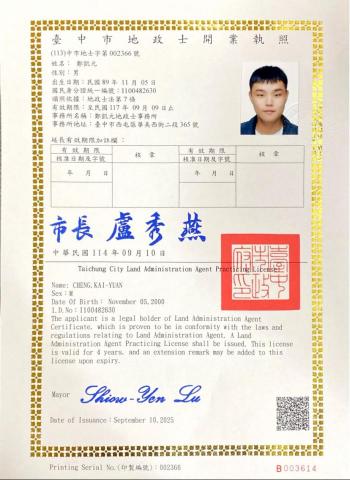 臺中市地政士開業執照
(113)中市地士字第002366號
姓名：鄭凱元
性別：男
出生日期：民國89年11月05日
國民身分證統一編號：I100482630
頒照依據：地政士法第7條
有效期限：至民國117年09月09日止
事務所名稱：鄭凱元地政士事務所
事務所地址：臺中市西屯區華美西街二段365號
延長有效期限加註欄：
有效期限 核准日期及字號 核章 有效期限 核准日期及字號 核章
年 月 日 年 月 日
市長 盧秀燕
中華民國114年09月10日
Taichung City Land Administration Agent Practicing License
Name: CHENG,KAI-YUAN
Sex: M
Date Of Birth: November 05,2000
I.D.No: I100482630
The applicant is a legal holder of Land Administration Agent
Certificate, which is proven to be in conformity with the laws and
regulations relating to Land Administration Agent. A Land
Administration Agent Practicing License shall be issued. This license
is valid for 4 years, and an extension remark may be added to this
license upon expiry.
Mayor Shiow-Yen Lu
Date of Issuance: September 10,2025
Printing Serial No.(印製編號): 002366
B 003614